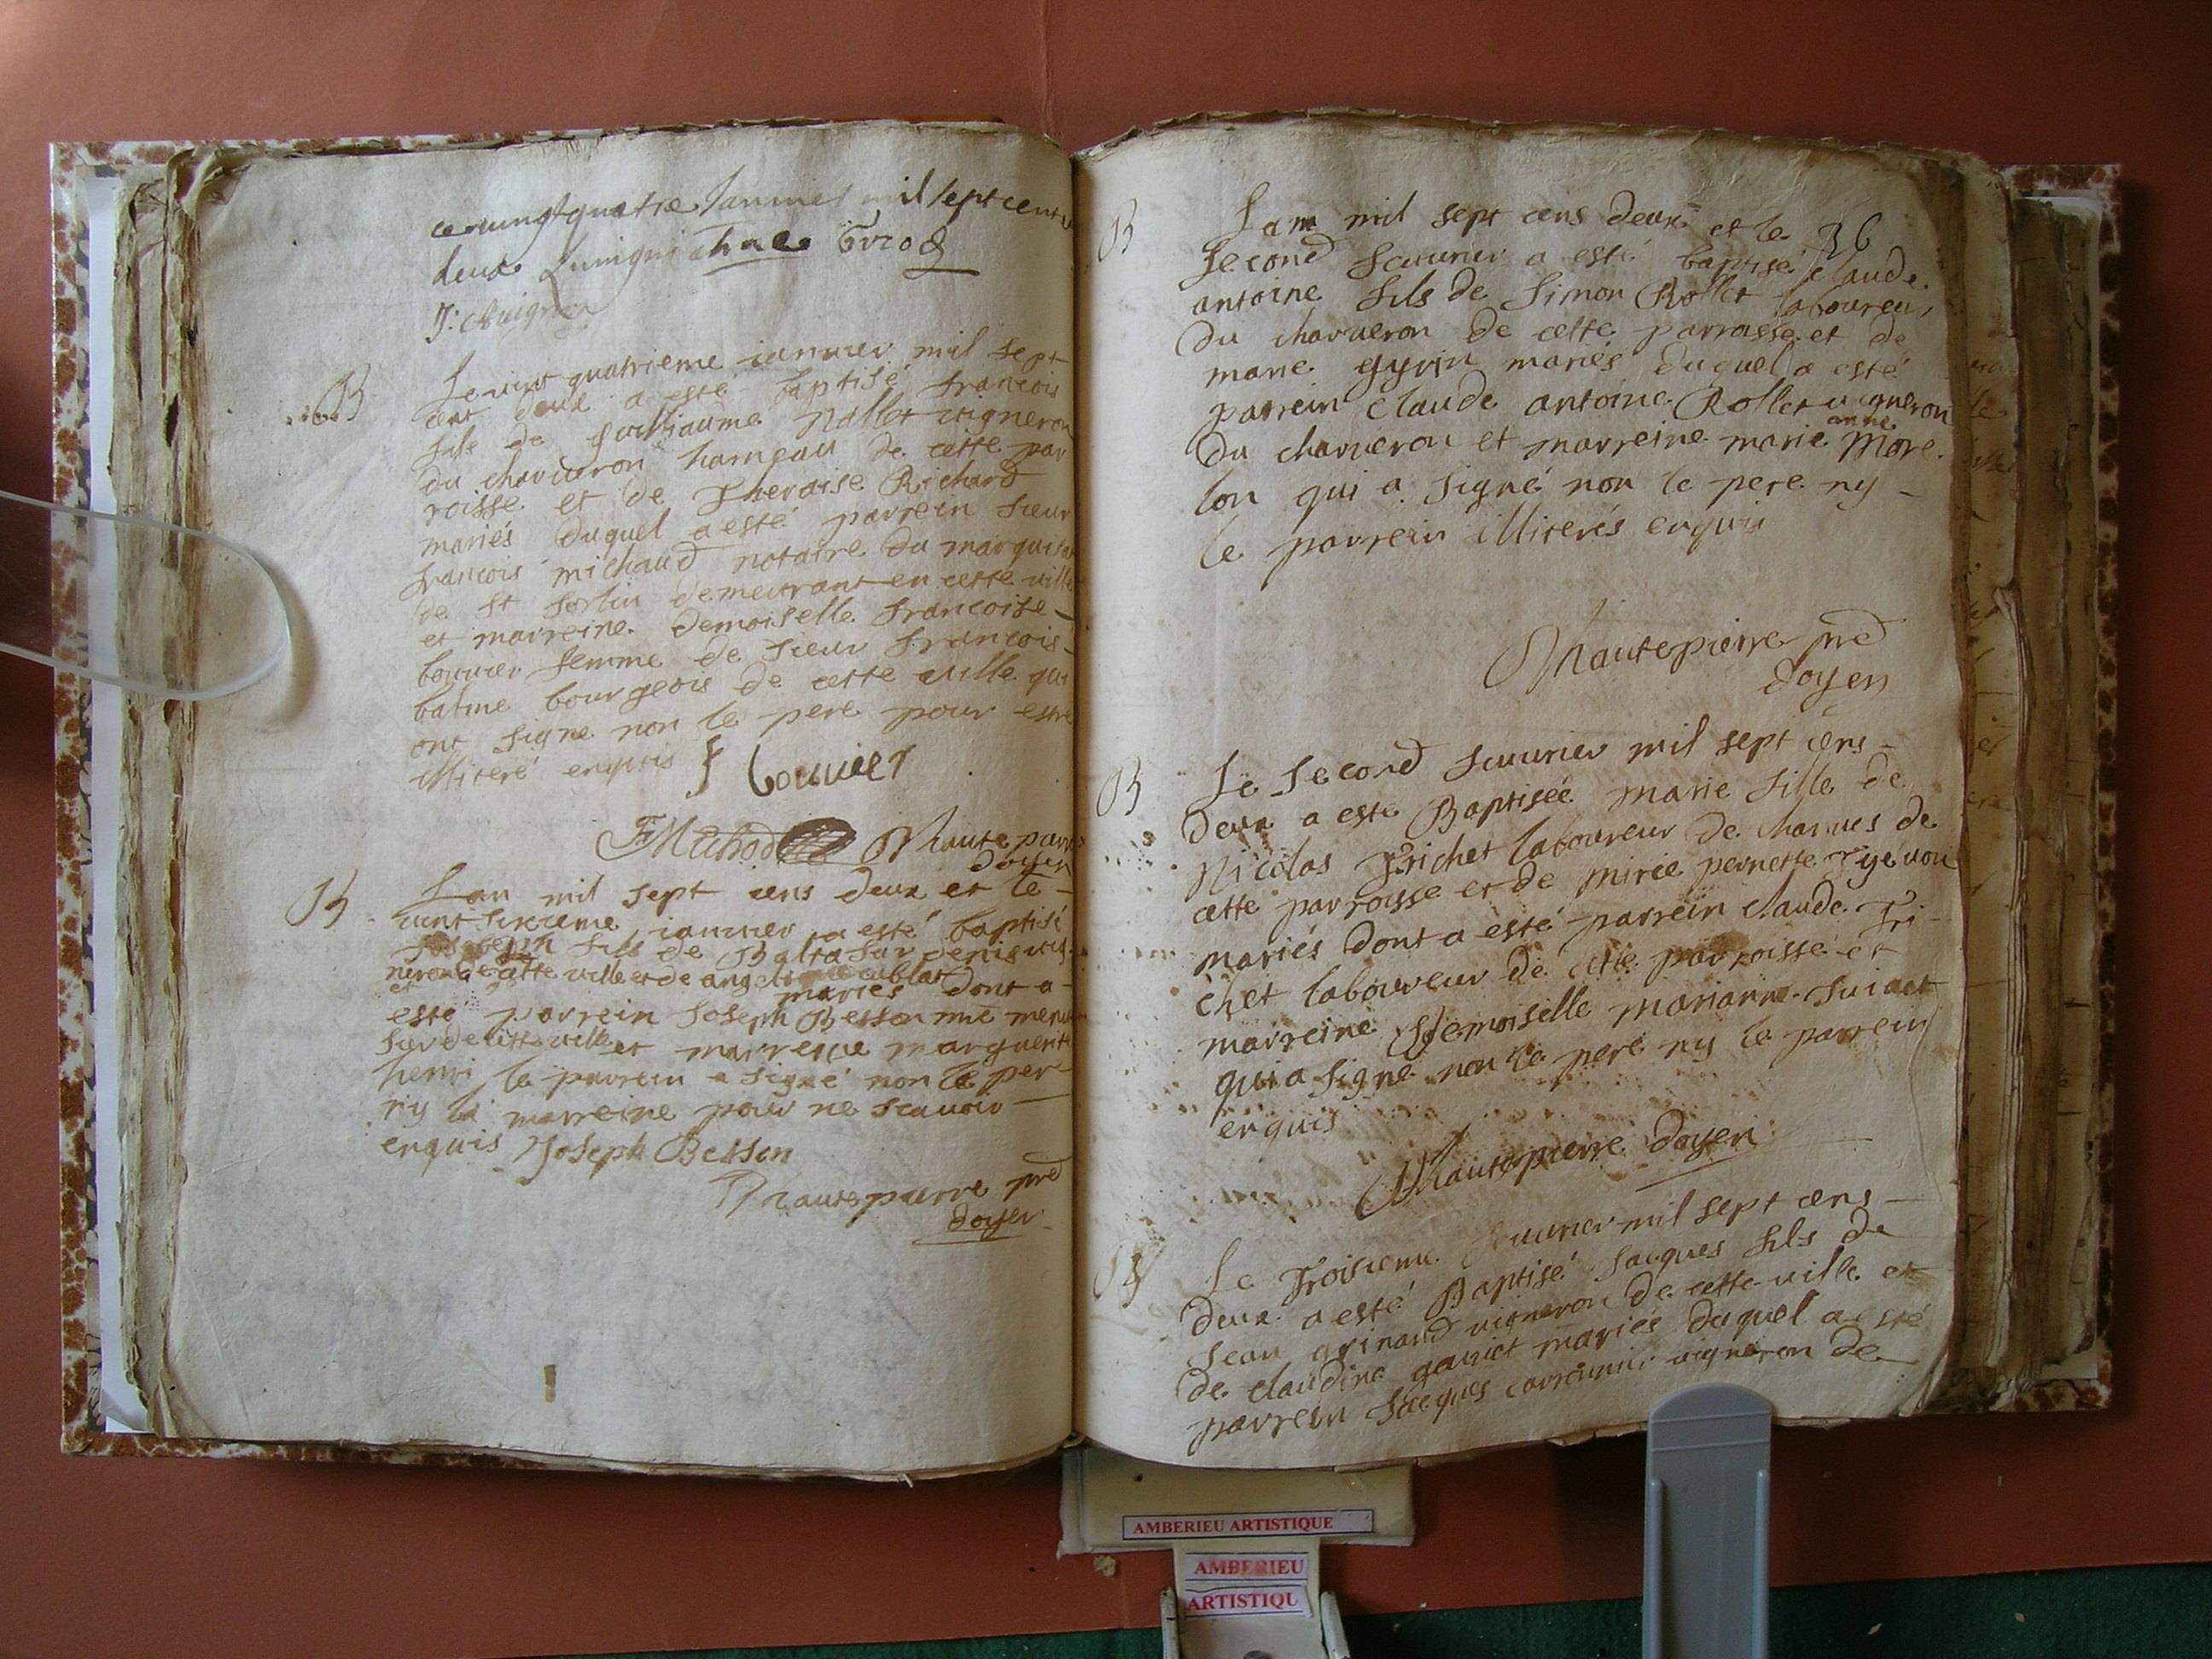 ce vingt quatre Janvier mil sept cents
deux
B
Le vint quatrieme ianvier mil sept
cent deux a esté baptisé francois
fils de Guilliaume Nallet vigneron
du charveron hameau de cette par
roisse et de Theraise Richard
mariés duquel a esté parrein sieur
francois michaud notaire du marquisat
de St sorlin demeurant en cette ville
et marreine Demoiselle francoise
bouvier femme de sieur francois
batme bourgeois de cette ville qui
ont signe non le pere pour estre
illiteré enquis f bouvier
Hautepierre
doyen
B
Lan mil sept cens deux et le
vint sixieme ianvier a esté baptisé
Joseph fils de Baltasar denis vig
neron de cette ville et de
et mariés dont a
esté parrein Joseph Besson me menui
sier de cette ville et marreine marguerite
henri le parrein a signé non le pere
ny la marreine pour ne scavoir
enquis Joseph Besson
Hautepierre pred
doyen
36
B
Lan mil sept cens deux et le
second feuvrier a esté baptisé claude
antoine fils de Simon Rollet laboureur
du charveron de cette parroisse et de
marie gyrin mariés duquel a esté
parrein claude antoine Rollet vigneron
anne
du charveron et marreine marie More
lon qui a signé non le pere ny
le parrein illiterés enquis
Hautepierre pred
doyen
B
Le second feuvrier mil sept cens
deux a este Baptisée marie fille de
Nicolas Trichet laboureur de charves de
cette parroisse et de pernette
mariés dont a esté parrein claude Tri
chet laboureur de cette parroisse et
marreine Demoiselle marianne
qui a signé non le pere ny le parrein
enquis
Hautepierre doyen
B
Le Troisieme feuvrier mil sept cens
deux a esté Baptisé Jacques fils de
Jean grinand vigneron de cette ville et
de claudine mariés duquel a esté
parrein Jacques vigneron de
AMBERIEU ARTISTIQUE
AMBERIEU
ARTISTIQU